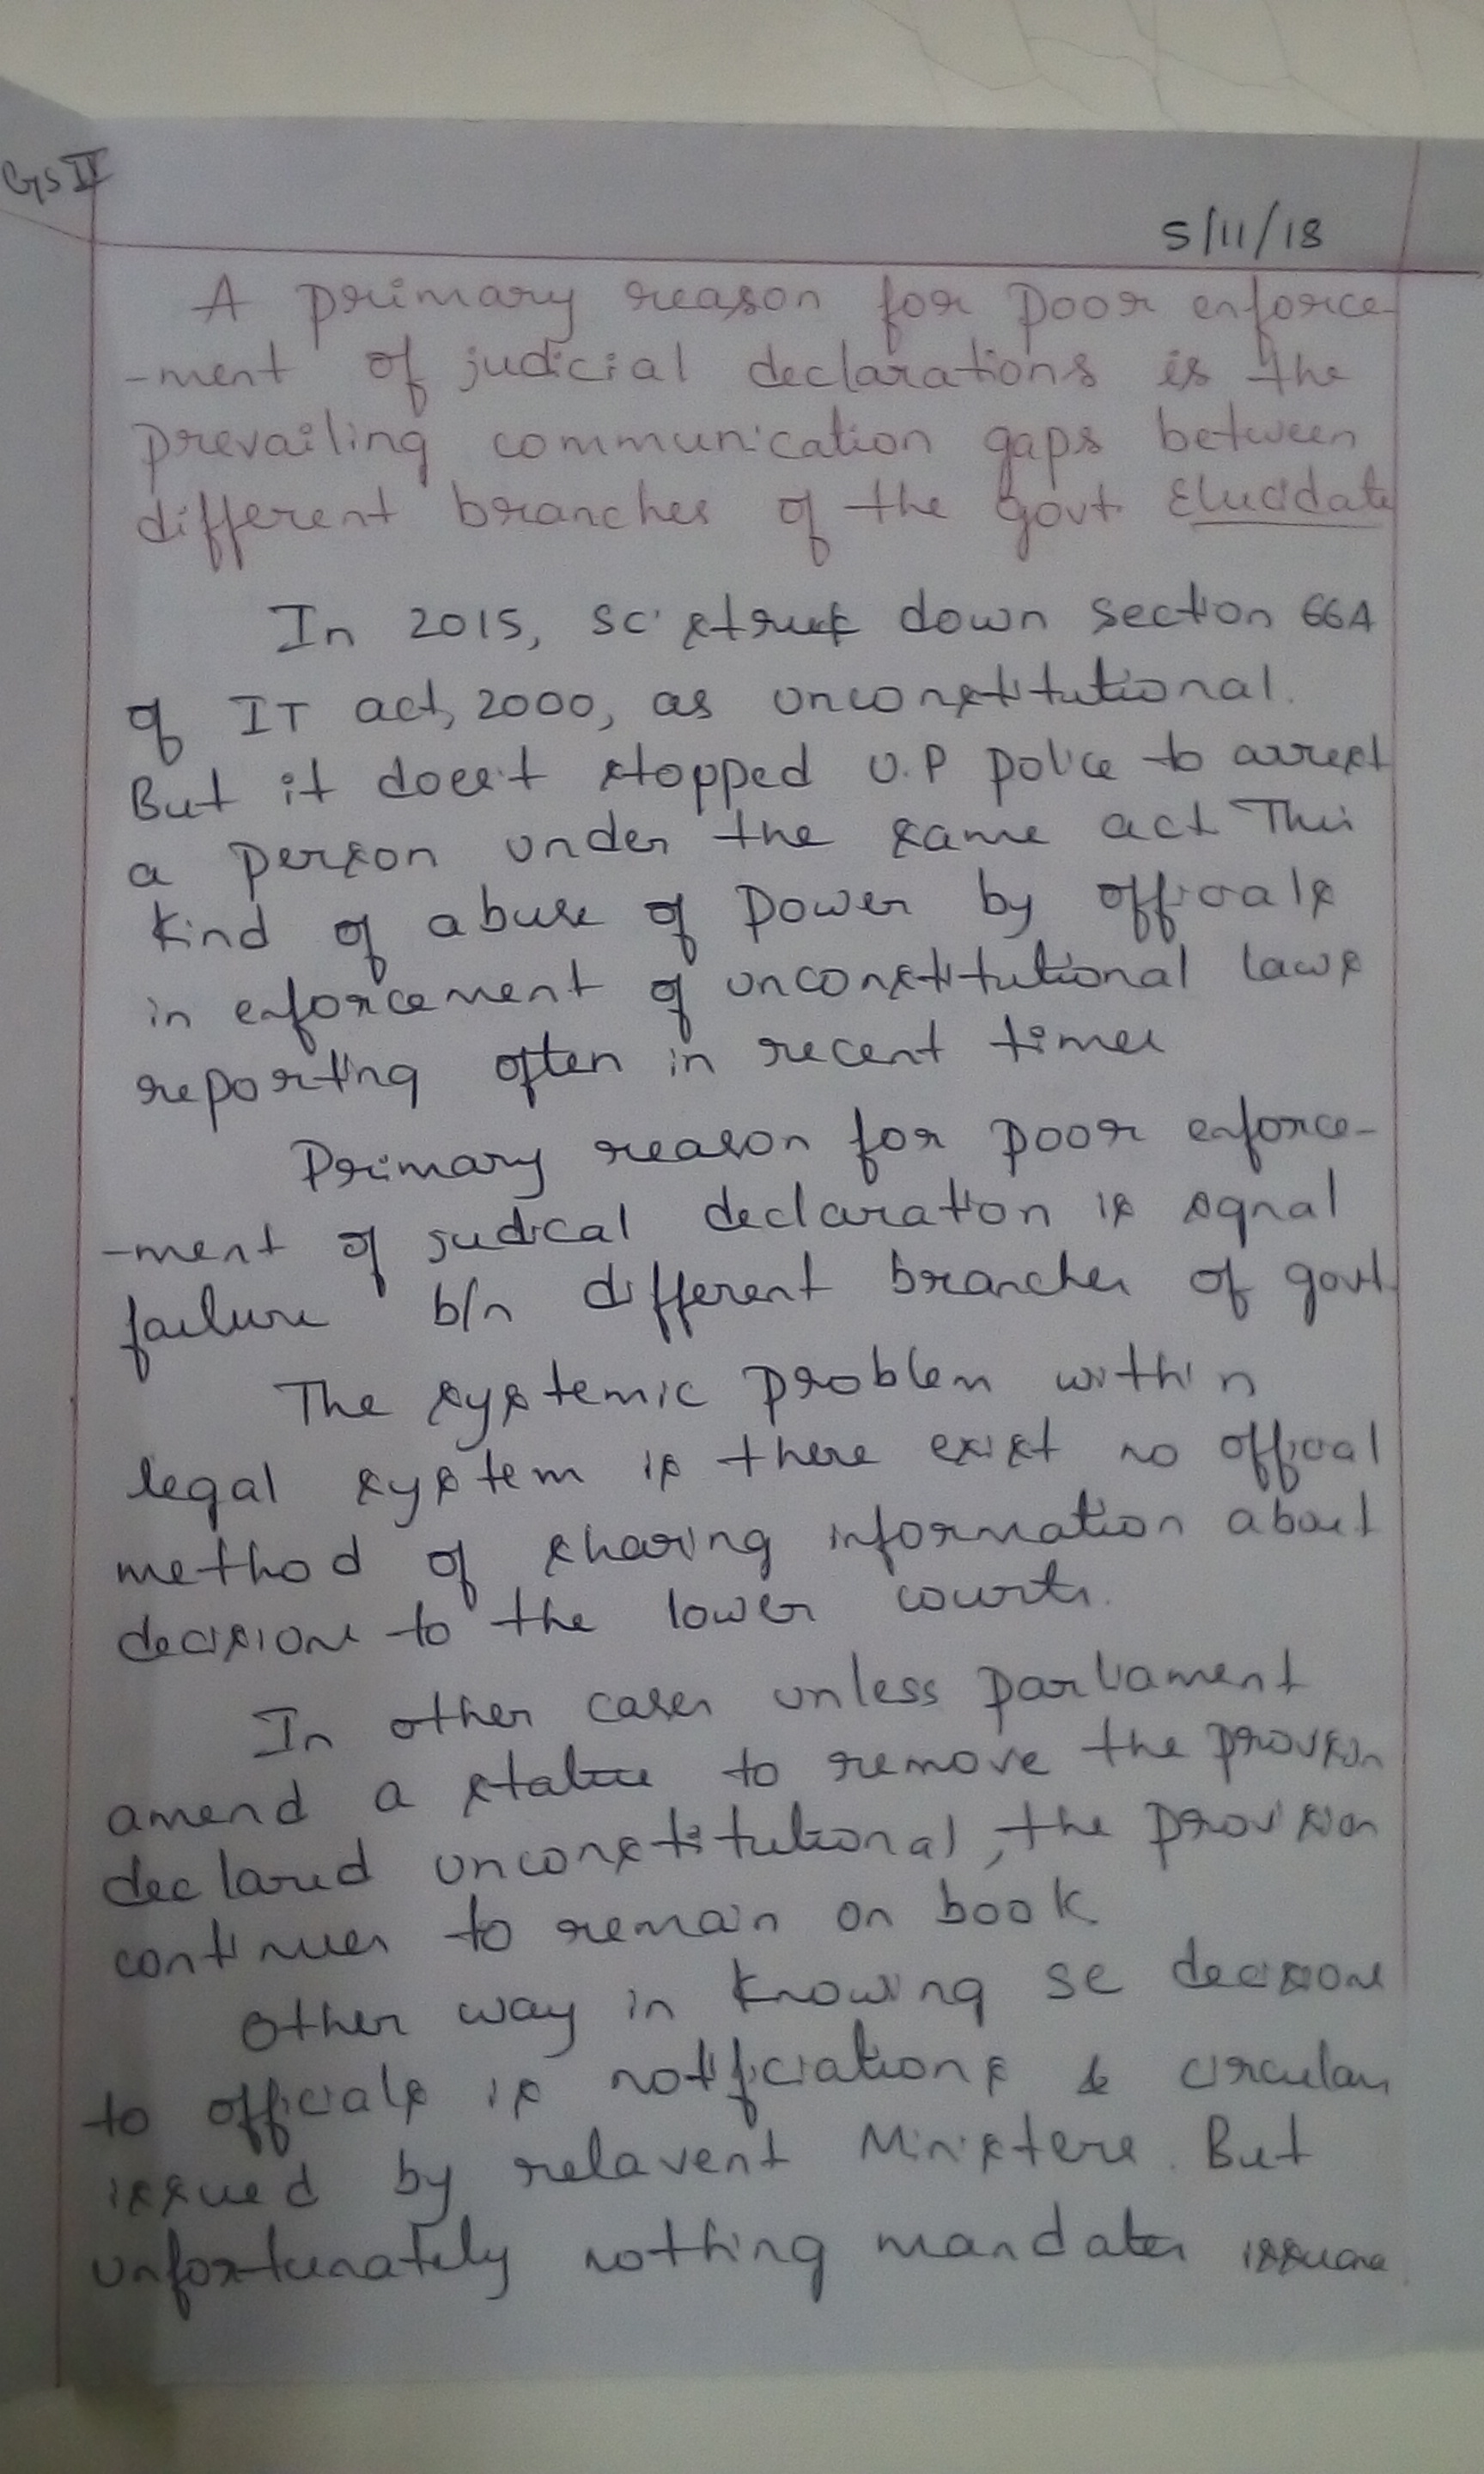 GS II
5/11/18
A primary reason for poor enforce-
-ment of judicial declarations is the
prevailing communication gaps between
different branches of the govt. Elucidate
In 2015, SC struck down section 66A
of IT act, 2000, as unconstitutional.
But it doesn't stopped U.P police to arrest
a person under the same act This
kind of abuse of power by officials
in enforcement of unconstitutional laws
reporting often in recent times
Primary reason for poor enforce-
-ment of judical declaration is signal
failure b/n different branches of govt.
The systemic problem within
legal system is there exist no offical
method of sharing information about
decisions to the lower courts.
In other cases unless parliament
amend a statue to remove the provision
declared unconstitutional, the provision
continues to remain on book
Other way in knowing SC decisions
to officials is notificiations & circulars
issued by relavent Ministers. But
unfortunately nothing mandates issuance